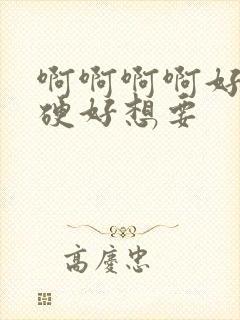 啊啊啊啊好
硬好想要
高庆忠